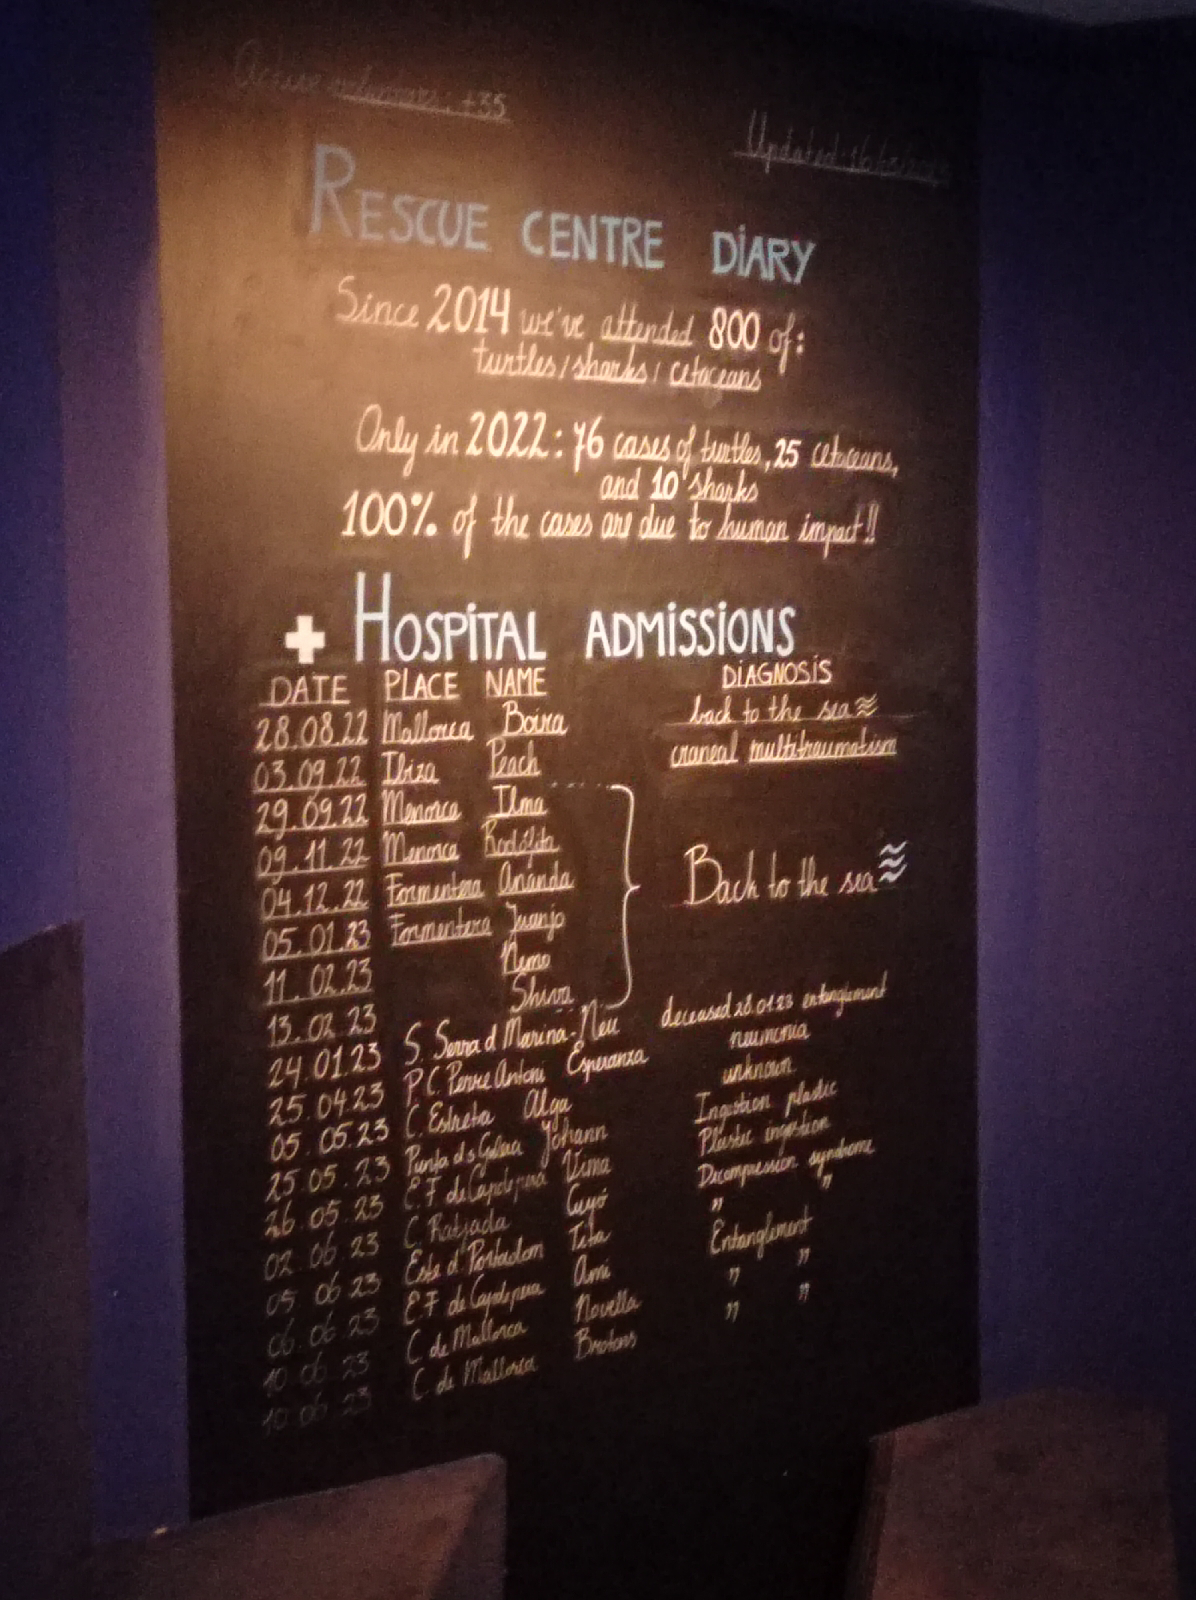 Active volunteers: +35
Updated:
RESCUE CENTRE DIARY
Since 2014 we've attended 800 of:
turtles/sharks/cetaceans
Only in 2022: 76 cases of turtles, 25 cetaceans,
and 10 sharks
100% of the cases are due to human impact!!
+ HOSPITAL ADMISSIONS
DATE PLACE NAME DIAGNOSIS
28.08.22 Mallorca Boira back to the sea
03.09.22 Ibiza Peach craneal multitraumatism
29.09.22 Menorca Ilma
09.11.22 Menorca Rodolfita
04.12.22 Formentera Ananda Back to the sea
05.01.23 Formentera Juanjo
11.02.23 Nemo
13.02.23 Shiva
24.01.23 S. Serra d Marina-Neu deceased 28.01.23 entanglement
25.04.23 P.C. Perre Antoni Esperanza neumonia
05.05.23 C. Estreta Alga unknown
25.05.23 Punta ds Galera Johann Ingestion plastic
26.05.23 E.F de Capdepera Uima Plastic ingestion
02.06.23 C. Ratjada Cuyó Decompression syndrome
05 06 23 Este d. Portcolom Tita " "
06.06.23 E.F de Capdepera Ami Entanglement
10 06 23 C de Mallorca Novella " "
10 06 23 C. de Mallorca Brotons " "